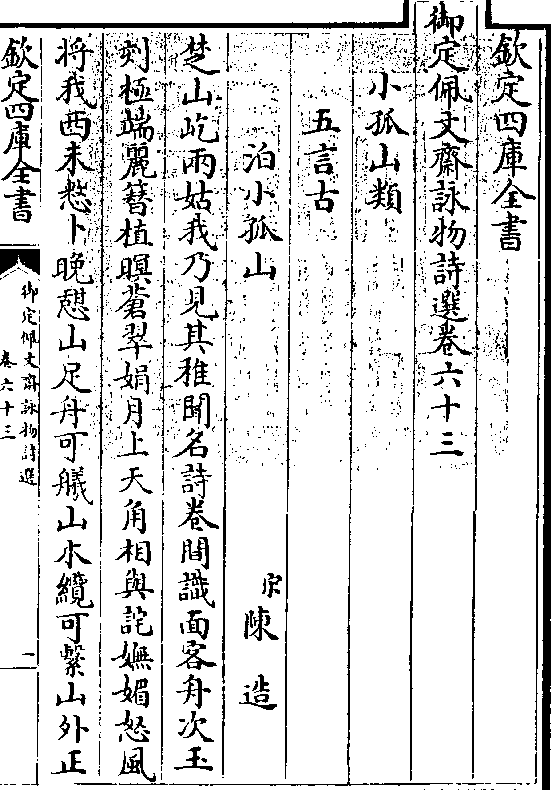 欽定四庫全書
御定佩文齋詠物詩選卷六十三
小孤山類
五言古
泊小孤山
宋陳造
楚山屹兩姑我乃見其稚聞名詩卷間識面客舟次玉
刻極端麗簪植暝蒼翠娟月上天角相與詫嫵媚怒風
將我西未愁卜晚憇山足舟可艤山木纜可繫山外正
欽定四庫全書
御定佩文齋詠物詩選
卷六十三
一